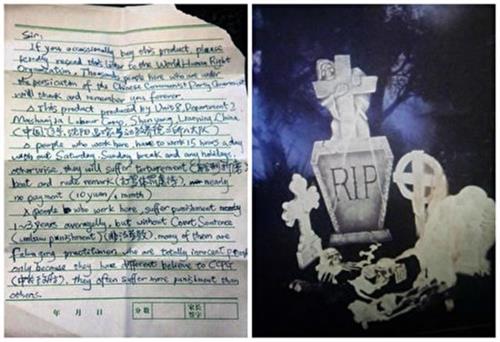 Sir:
If you occassionally buy this product, please
kindly resend this letter to the World Human Right
Organization. Thousands people here who are under
the persicution of the Chinese Communist Party Government
will thank and remember you forever.
This product produced by Unit 8, Department 2,
Machanjia Labour Camp, Shenyang, Liaoning, China
(中国, 辽宁, 沈阳
people who work here, have to work 15 hours a day
without Saturday, Sunday break and any holidays,
otherwise, they will suffer torturement
beat and rude remark nearly
no payment (10 yuan / month)
people who work here, suffer punishment nearly
1~3 years averagelly, but without Court Sentence
(unlaw punishment) many of them are
Falun gong practitioner, who are totally innocent people
only because they have different believe to CCPG
they often suffer more punishment than
others.
年 月 日
分数
家长
签字
RIP